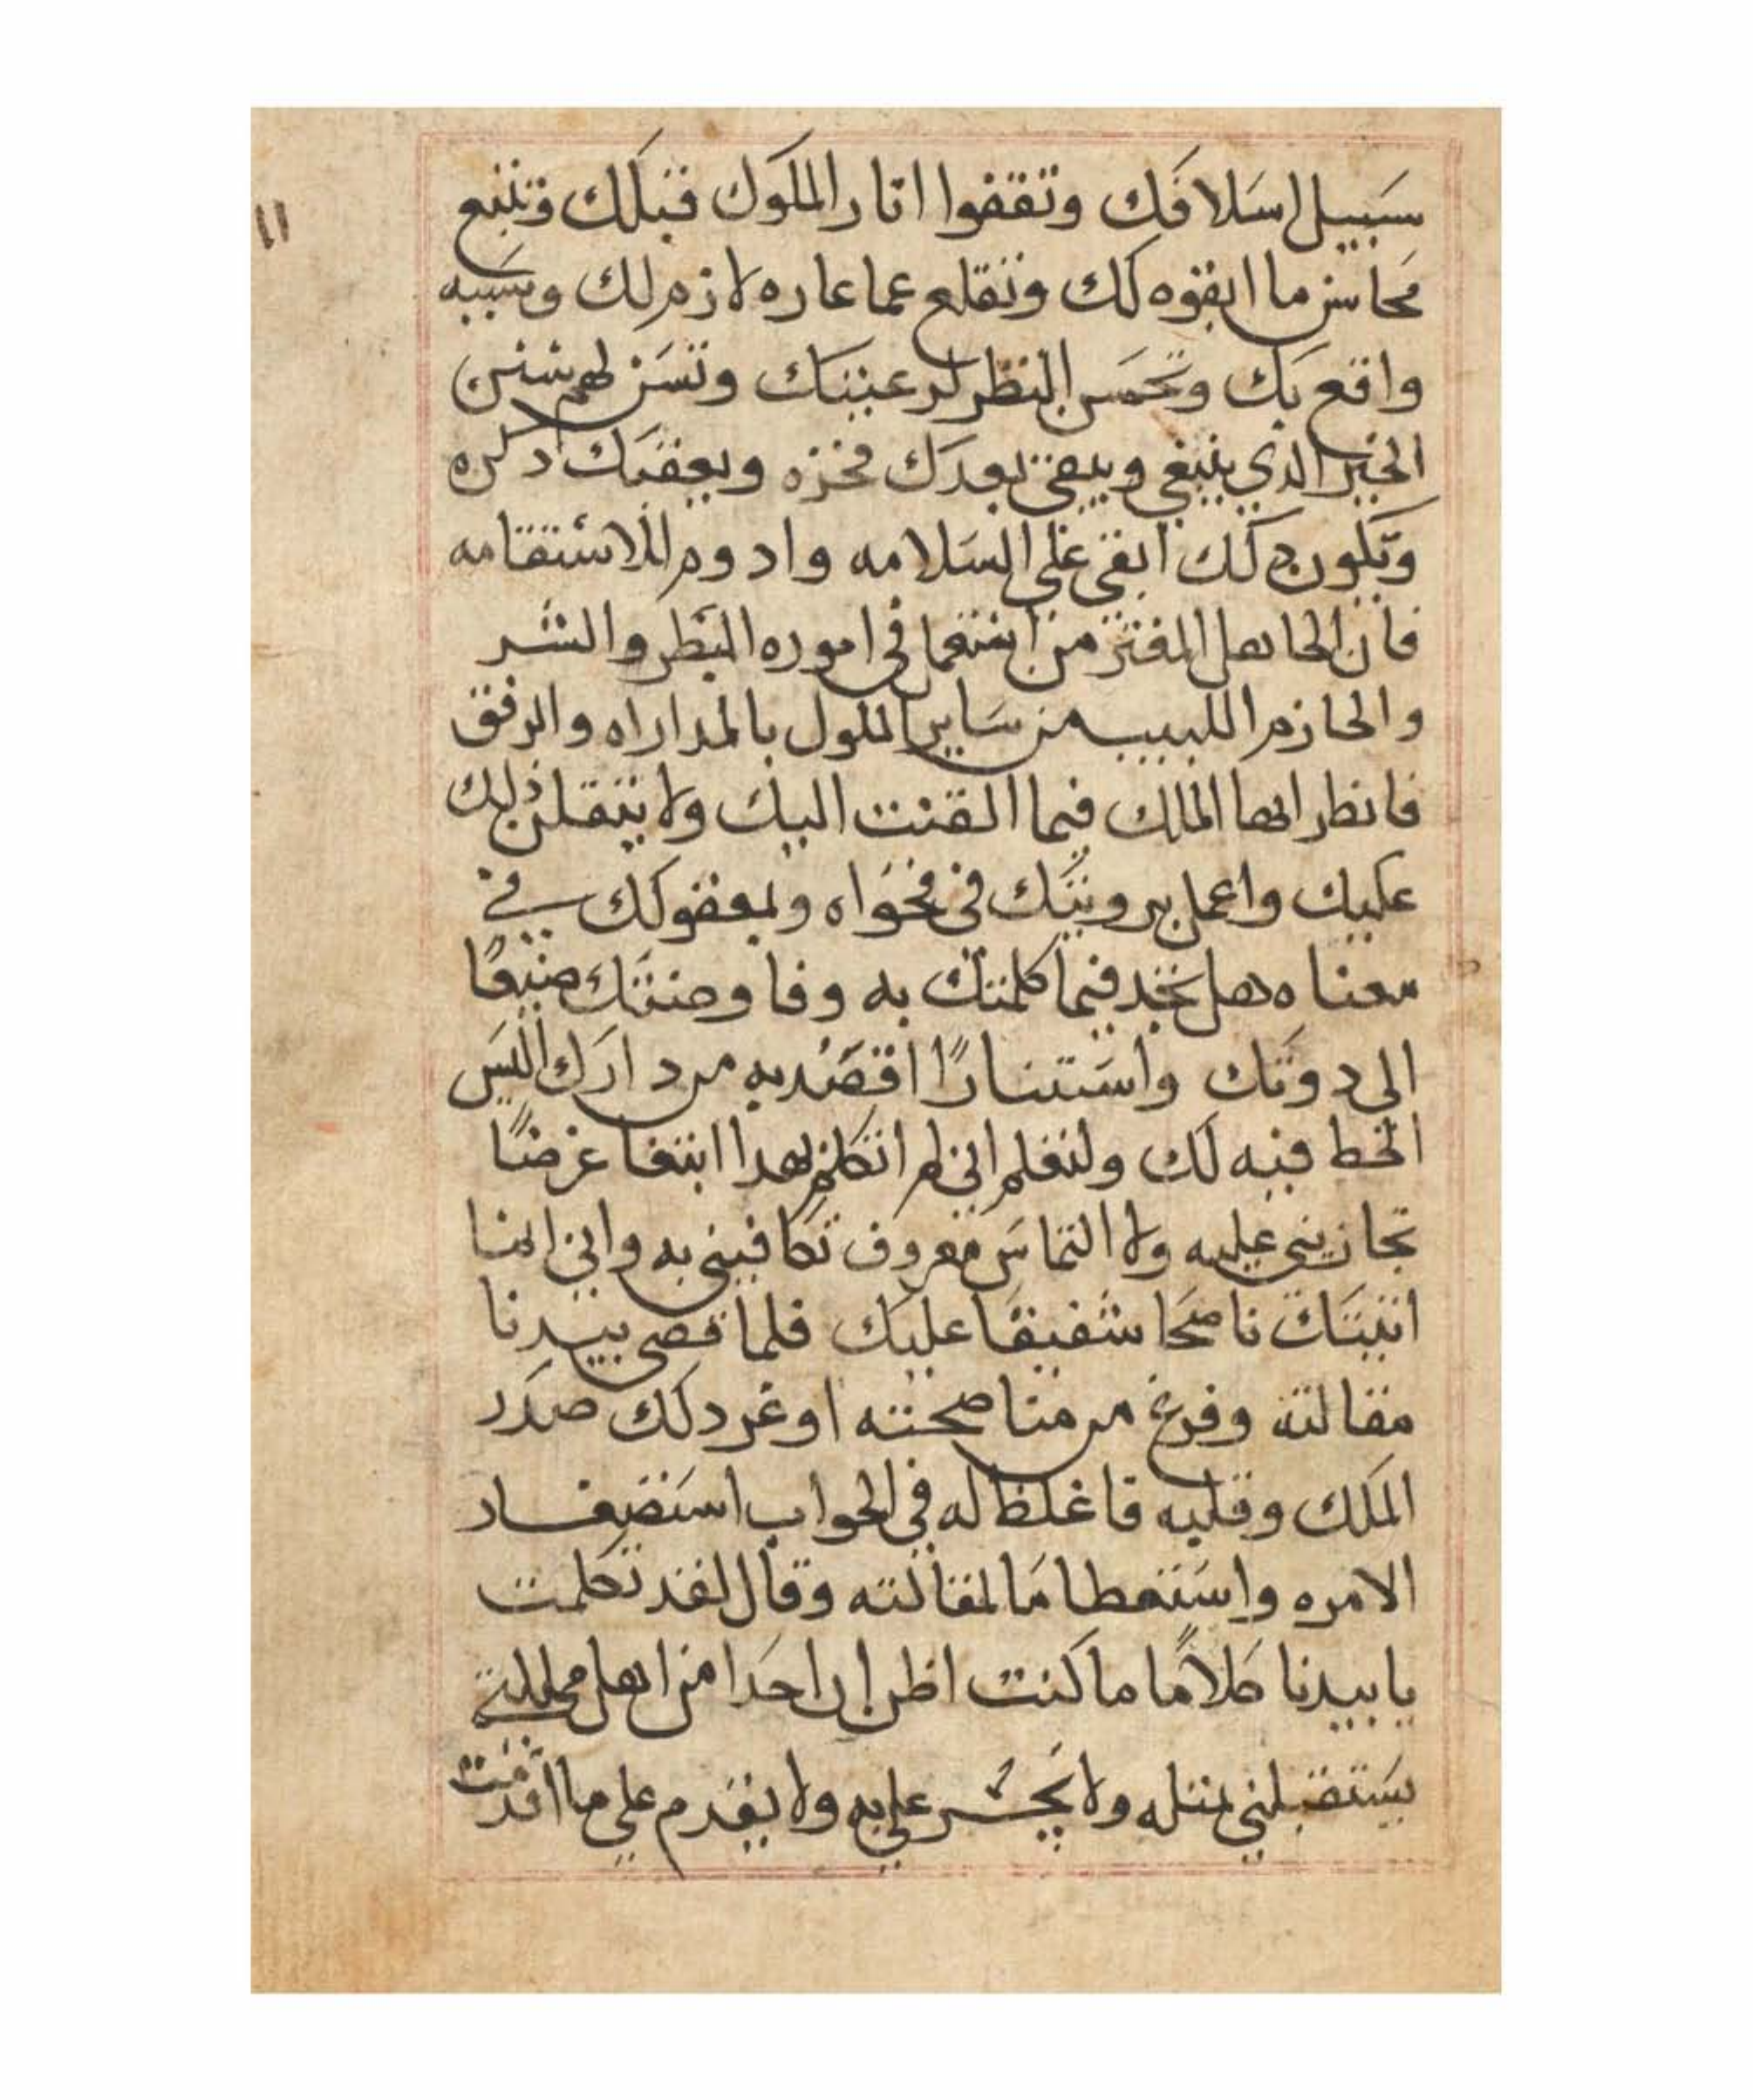 سبيل اسلافك وتقفوا اثار الملوك قبلك وتتبع
محاسن ما ابقوه لك وتقلع عما عاره لازم لك وشبيه
واقع بك وتحسن النظر لرعيتك وتسن لهم سنن
الخير الذي ينبغي ويبقى بعدك فخره ويعقبك ذكره
ويكون ذلك ابقى على السلامه وادوم للاستقامه
فان الجاهل المغتر من استعمل في اموره البطر والشر
والحازم اللبيب من ساير الملوك بالمداراه والرفق
فانظر ايها الملك فيما القيت اليك ولا يثقلن ذلك
عليك واعمل برويتك في فحواه وبعقولك في
معناه هل تجد فيما كلمتك به وفاوضتك ضيقا
الى دوتك واستنارًا اقصد به من دارك اليس
الحظ فيه لك ولتعلم اني لم اتكلم بهذا ابتغا عرضًا
تجازيني عليه ولا التماس معروف تكافيني به واني انما
اتيتك ناصحا شفيقا عليك فلما قضى بيدنا
مقالته وفرغ من مناصحته اوغر ذلك صدر
الملك وقلبه فاغلظ له في الجواب استضعاد
الامره واستعطاما لمقالته وقال لقد تكلمت
يا بيدنا كلامًا ما كنت اظن ان احدا من اهل مملكتي
يستقبلني بمثله ولا يجسر عليه ولا يقدم على ما اقدمت
١١